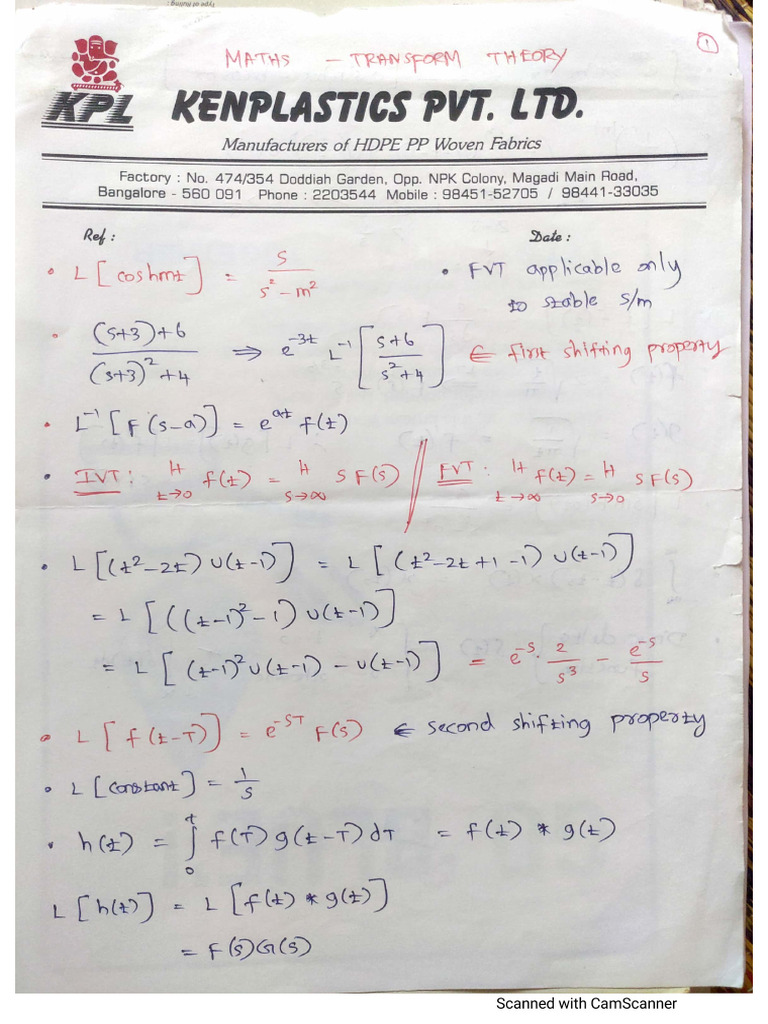 Type of Ruling :
MATHS - TRANSFORM THEORY
1
KPL KENPLASTICS PVT. LTD.
Manufacturers of HDPE PP Woven Fabrics
Factory : No. 474/354 Doddiah Garden, Opp. NPK Colony, Magadi Main Road,
Bangalore - 560 091 Phone : 2203544 Mobile : 98451-52705 / 98441-33035
Ref : Date :
• L[coshmt] = s/(s²-m²)
• FVT applicable only
to stable s/m
• ((s+3)+6)/((s+3)²+4) ⇒ e^-3t L^-1[(s+6)/(s²+4)] ∈ first shifting property
• L^-1[F(s-a)] = e^at f(t)
• IVT: lt t→0 f(t) = lt s→∞ S F(s) // FVT: lt t→∞ f(t) = lt s→0 S F(s)
• L[(t²-2t) u(t-1)] = L[(t²-2t+1-1) u(t-1)]
= L[((t-1)²-1) u(t-1)]
= L[(t-1)²u(t-1) - u(t-1)] = e^-s · 2/s³ - e^-s/s
• L[f(t-T)] = e^-sT F(s) ∈ second shifting property
• L[constant] = 1/s
• h(t) = ∫₀^t f(T) g(t-T) dT = f(t) * g(t)
L[h(t)] = L[f(t) * g(t)]
= F(s)G(s)
Scanned with CamScanner